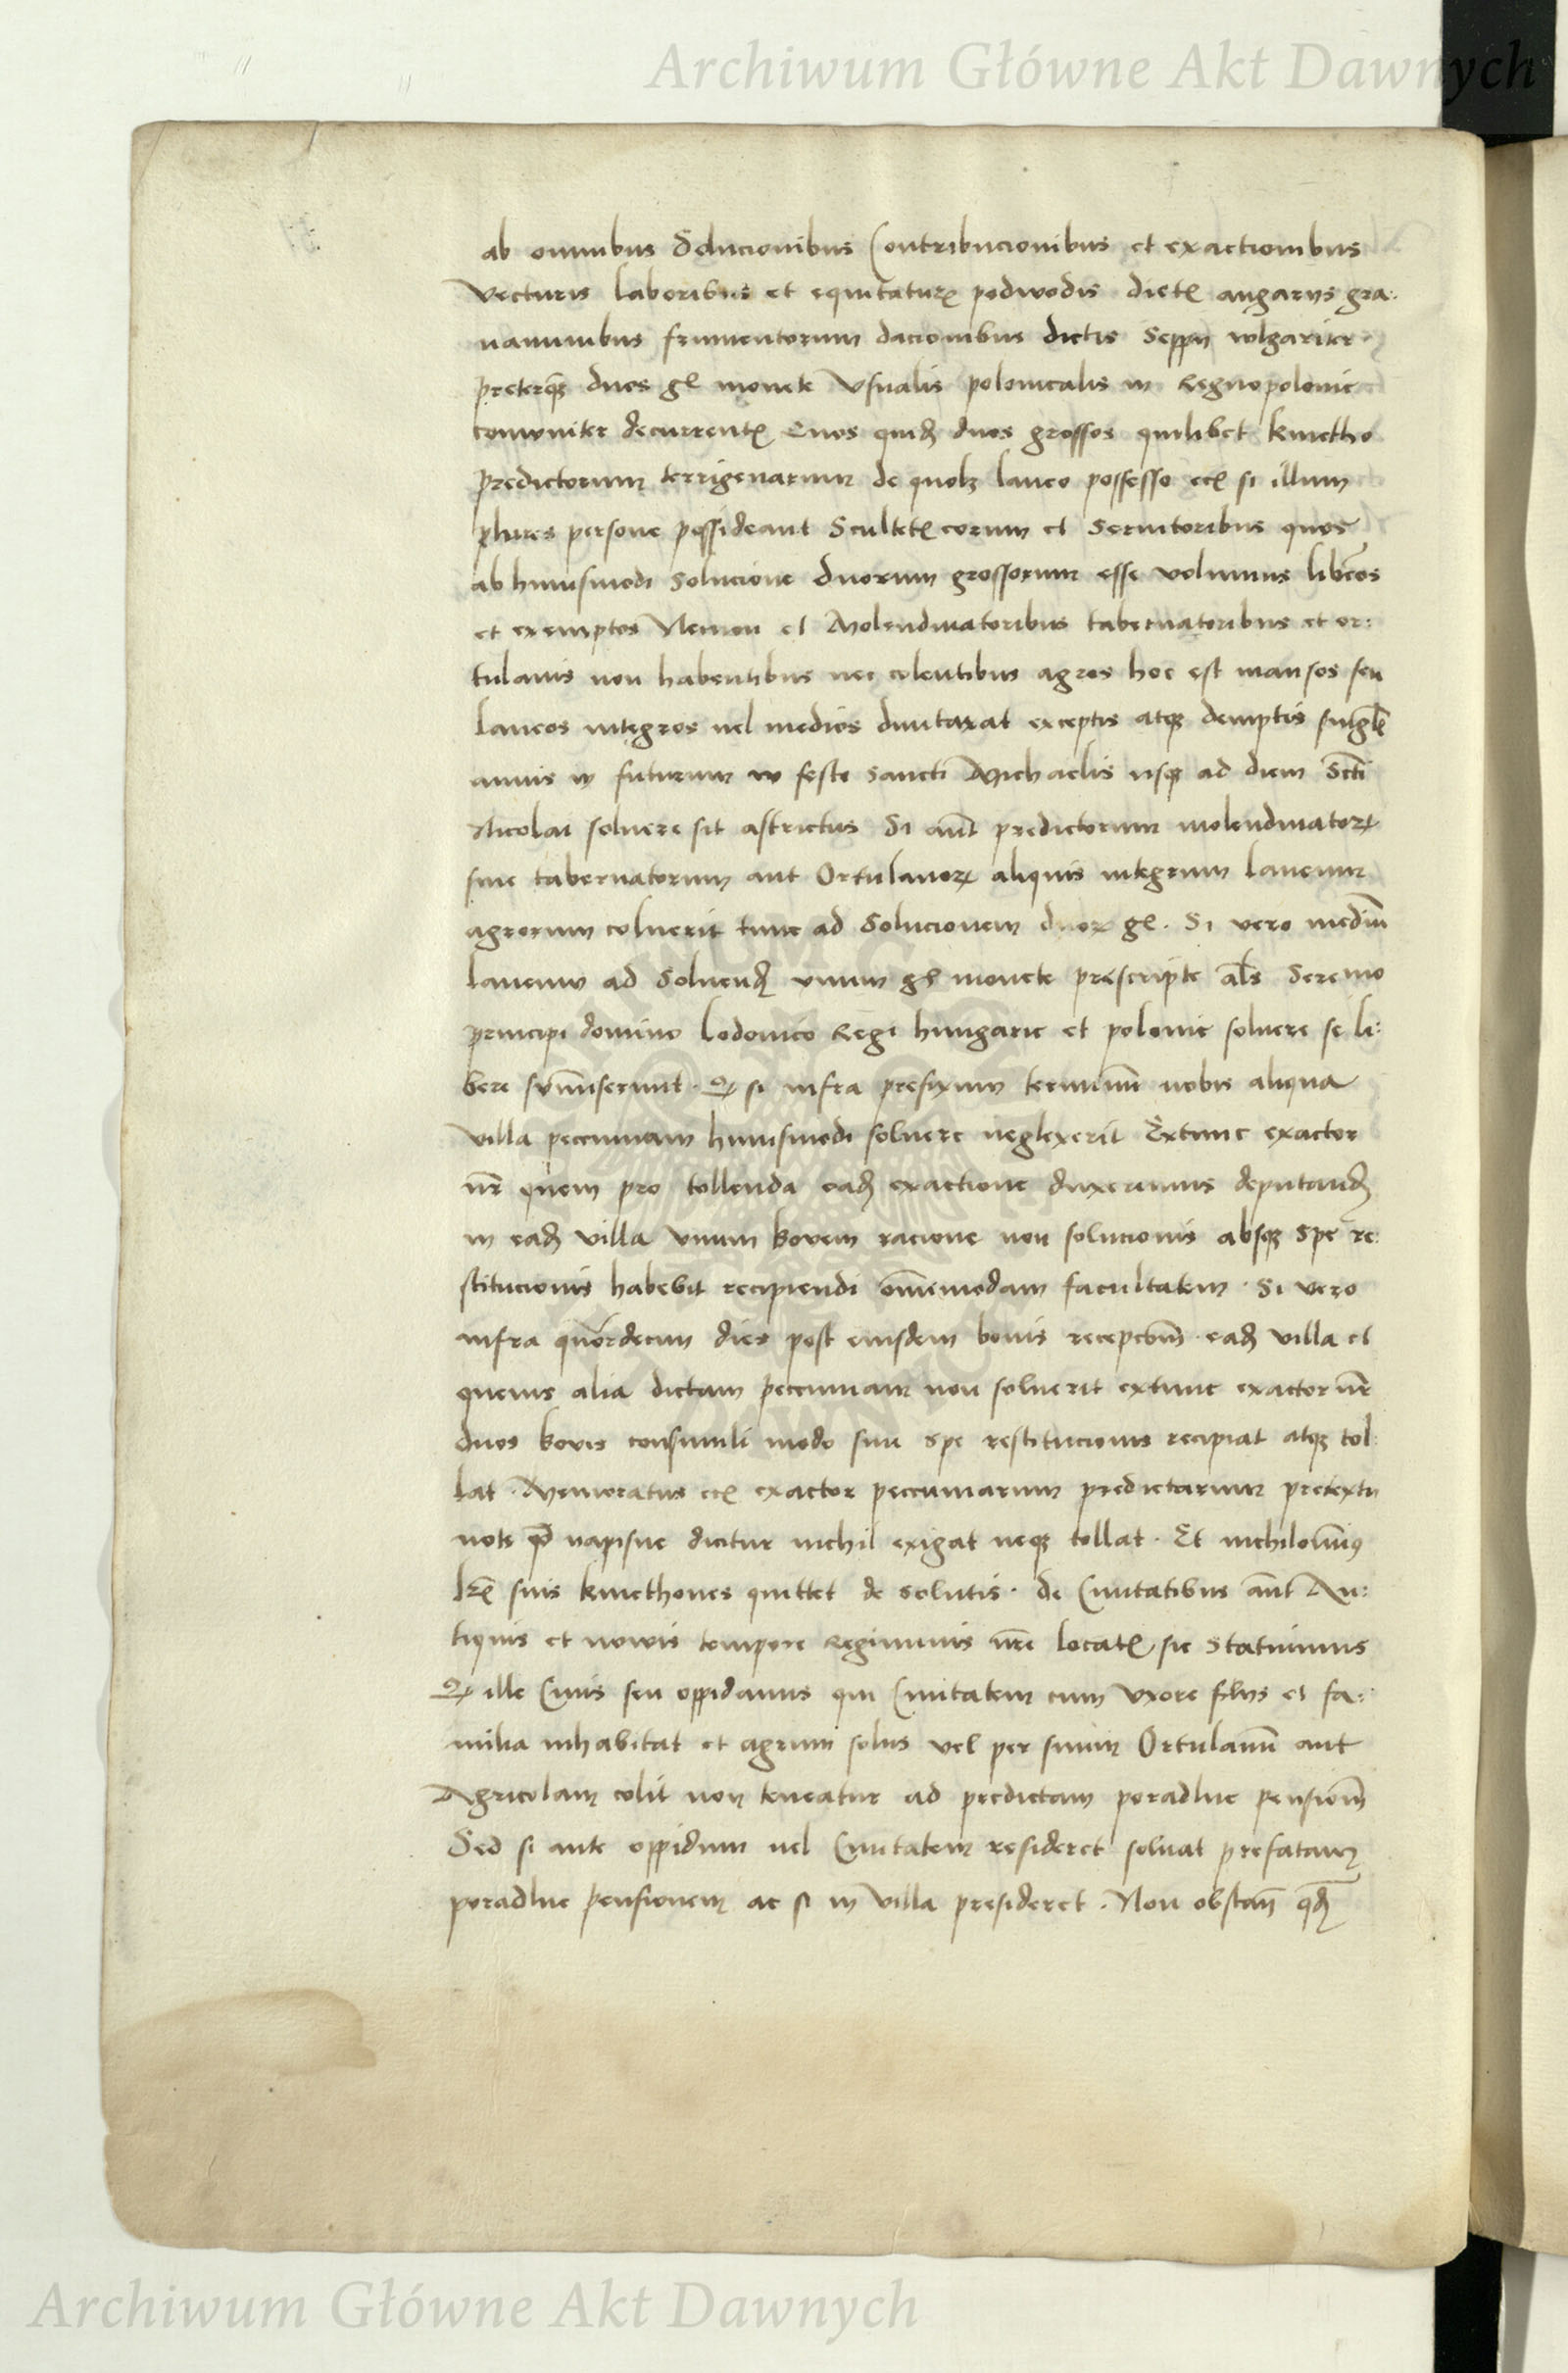 Archiwum Główne Akt Dawnych
ab omnibus Solucionibus Contribucionibus et exactionibus
vecturis laboribus et equitaturꝭ podwodis dictꝭ angarijs gra:
naminibus frumentorum dacionibus dictis Seppij wlgariter
preterqȝ duos gꝭ monete vsualis polonicalis in Regno polonie
comuniter decurrentꝭ Quos quidē duos grossos quilibet kmetho
predictorum terrigenarum de quolȝ laneo possesso ecꝭ si illum
plures persone possideant Scultetꝭ eorum et Seruitoribus quos
ab huiusmodi Solucione duorum grossorum esse volumus liberos
et exemptos Necnon et Molendinatoribus tabernatoribus et or:
tulanis non habentibus nec colentibus agros hoc est mansos seu
laneos integros uel medios duntaxat exceptis atqȝ demptis singlis
annis in futurum in festo sancti Michaelis usqȝ ad diem Scti
Nicolai soluere sit astrictus Si aūt predictorum molendinatorꝝ
siue tabernatorum aut Ortulanorꝝ aliquis integrum laneum
agrorum coluerit tunc ad Solucionem duorꝝ gꝭ. Si vero mediū
laneum ad Soluendū vnum gꝭ monete prescripte als Seremo
principi domino lodouico Regi hungarie et polonie soluere se li:
bere summiserunt. Qꝫ si infra prefixum terminū nobis aliqua
villa peccuniam huiusmodi soluere neglexerit Extunc exactor
nr̄ quem pro tollenda eadē exactione duxerimus deputandū
in eadē villa vnum bouem racione non solucionis absqȝ spe re:
stitucionis habebit recipiendi om̄imodam facultatem. Si vero
infra quordecim dies post eiusdem bouis recepcōm eadē villa et
queuis alia dictam peccuniam non soluerit extunc exactor nr̄
duos boues consimili modo sine spe restitucionis recipiat atqȝ tol:
lat. Memoratus ecꝭ exactor peccuniarum predictarum pretextu
note qd̄ napisne dicitur nichil exigat neqȝ tollat. Et nichilomiꝰ
lrꝭ suis kmethones quittet de solutis. de Ciuitatibus aūt An:
tiquis et nowis tempore Regiminis nr̄i locatꝭ sic Statuimus
Qꝫ ille Ciuis seu oppidanus qui Ciuitatem cum vxore filijs et fa:
milia inhabitat et agrum solus vel per suum Ortulanū aut
Agricolam colit non teneatur ad predictam poradlne pensionē
Sed si ante oppidum uel Ciuitatem resideret soluat prefatam
poradlne pensionem ac si in villa presideret. Non obstan̄ qd̄
Archiwum Główne Akt Dawnych